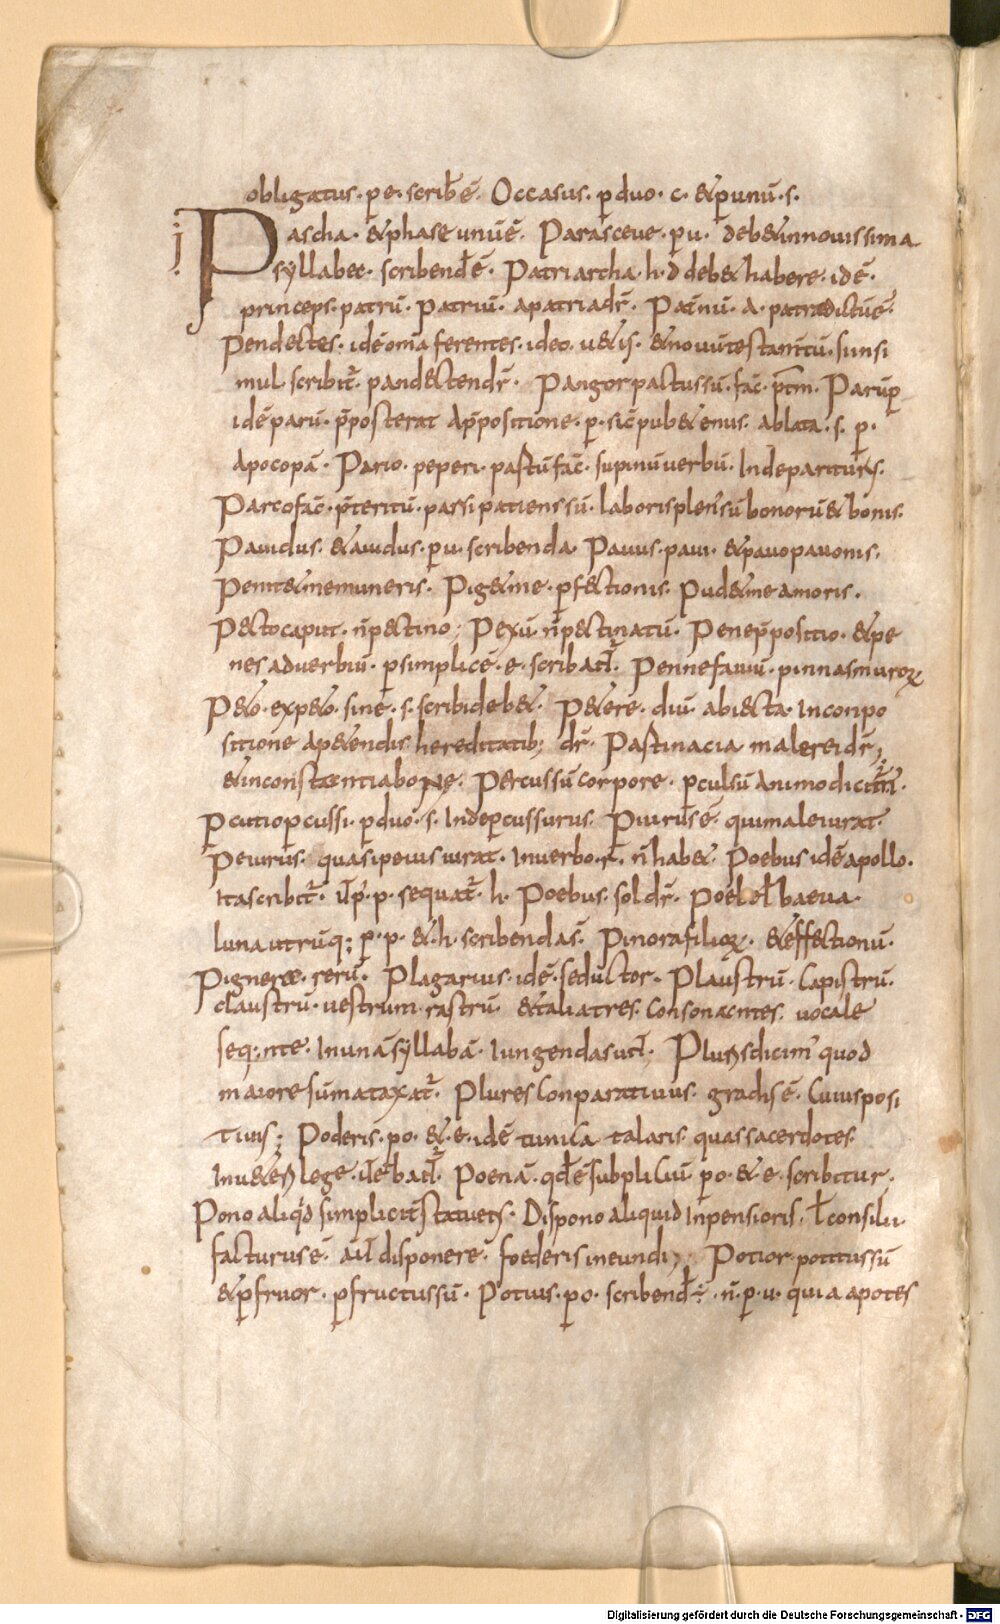 obligatus· pe· scribē· Occasus· ꝑ duo· c· &ꝑunū·s·
Pascha· &phase unūē· Parasceue· ꝑu· deb& innouissima
syllabae· scribendēē· Patriarcha·h· deb& habere· idē·
princeps·patrū· patriū· apatria dr̄· Pat̄nū· A· patre dictūē·
Pendectes· idē om̄a ferentes· ideo· u&is· &nouū testam̄tū· sunsi
mul· scribit̄· pandecten dr̄· Pangor pactussū· fac̄· p̄tm· Parūꝑ
idē parū· p̄posterat Ap̄positione· ꝑ· sic̄ pub&enus· ablata·s· ꝑ·
Apocopā· Pario· peperi· pastū fac̄· supinū uerbū· Inde pariturus·
Parco fac̄· p̄teritū· parsi patienssū· laboris plen'sū bonorū & bonis·
Pauidus· &auidus· ꝑu· scribenda· Pauus·paui· &pauo pauonis·
Penit&me muneris· Pig&me· ꝑfectionis· Pud&me amoris·
Pecto caput· n̄ pectino; Pexū n̄ pectinatū· Pene p̄positio· &pe
nes aduerbiū· ꝑ simplicē·e· scribat̄· Penne fauiū· pinnas muroꝝ
P&o·exp&o· sine·s·scribi deb&· P&ere· diu· abiecta· Inconpo
sitione ap&endis hereditatib; dr̄· Pastinacia male rei dr̄;
&inconstantia bone· Percussū corpore· ꝑculsū Animo dicit̄·
Pcutio ꝑcussi· ꝑ duo·s· Inde ꝑcussurus· Piurusē· qui male iurat·
Peiurus· quasi peius iurat· Inuerbo·r· n̄ hab&· Poebus idē apollo·
Ita scribit̄· ꝑ·p· sequat̄·h· Poebus· sol dr̄· Poebe baeua·
luna utrūq; ꝑ·p· &·h· scribendās· Pinora filioꝝ· &effectionū·
Pignera· rerū· Plagarius· idē·seductor· Plaustrū· Capistrū·
claustrū· uestrum·rastrū· &talia tres· Consonantes· uocale
seq;nte· Inunā syllabā· Iungendas Plus dicim̄ quod
maiore sūma taxat̄· Plures Conparatiuus· gradisē· Cuius posi
tiuus; Poderis·po· &·e· idē tunica talaris· quas sacerdotes
Inu&eri lege· Poenā· qd̄ ē subpliciū· po·&e· scribitur·
Pono aliqd̄ simplicit̄ Dispono aliquid Inpensioris· l̄ consilii·
facturusē· disponere· foederis ineundi; Potior·potitussū
&ꝑfruor· ꝑfructussū· Potius·po· scribend̄· n̄·ꝑ·u· quia apotes
Digitalisierung gefördert durch die Deutsche Forschungsgemeinschaft - DFG